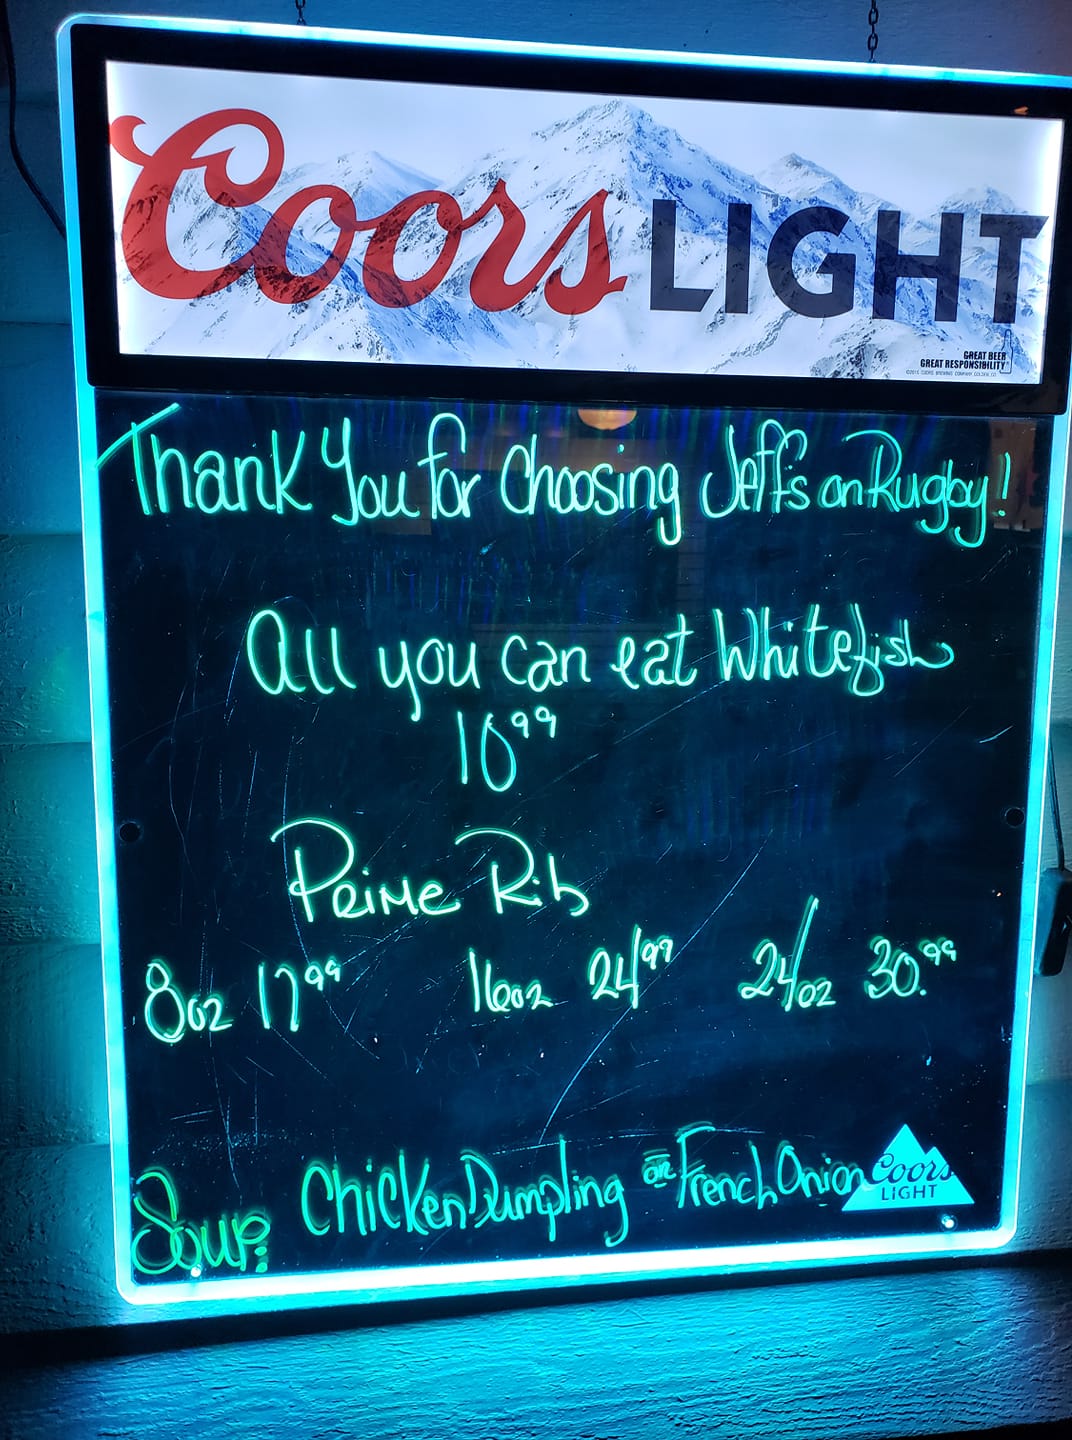 Coors LIGHT
GREAT BEER
GREAT RESPONSIBILITY
©2015 COORS BREWING COMPANY, GOLDEN, CO
Thank You for Choosing Jeff's on Rugby!
All you can eat Whitefish
10 99
Prime Rib
8oz 17 99 16oz 24 99 24/oz 30.99
Soup: Chicken Dumpling or French Onion
Coors
LIGHT